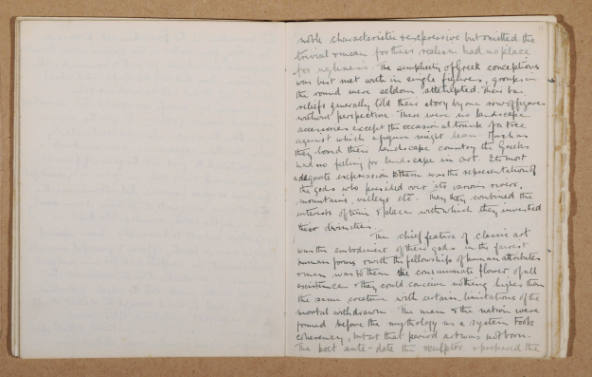 noble characteristic & expressive but omitted the
trivial & mean for their realism had no place
for ugliness. The simplicity of Greek conceptions
was best met with in single figures, groups in
the round were seldom attempted. Their bas
reliefs generally told their story by one row of figures
without perspective. There were no landscape
accessories except the occasional trunk of a tree
against which a figure might lean. Much as
they loved their landscape country the Greeks
had no feeling for landscape in art. Its most
adequate expression to them was the representation of
the gods who presided over its various rivers,
mountains, valleys etc. They combined the
interests of time & place with which they invested
these divinities.
The chief feature of classic art
was the embodiment of these gods in the fairest
human forms & with the fellowship of human attributes
& man was to them the consummate flower of all
existence & they could conceive nothing higher than
the same creature with certain limitations of the
mortal withdrawn. The man & the nation were
formed before the mythology as a system took
coherency, but at that period art was not born.
The poet ante-dates the sculptor & prepared the